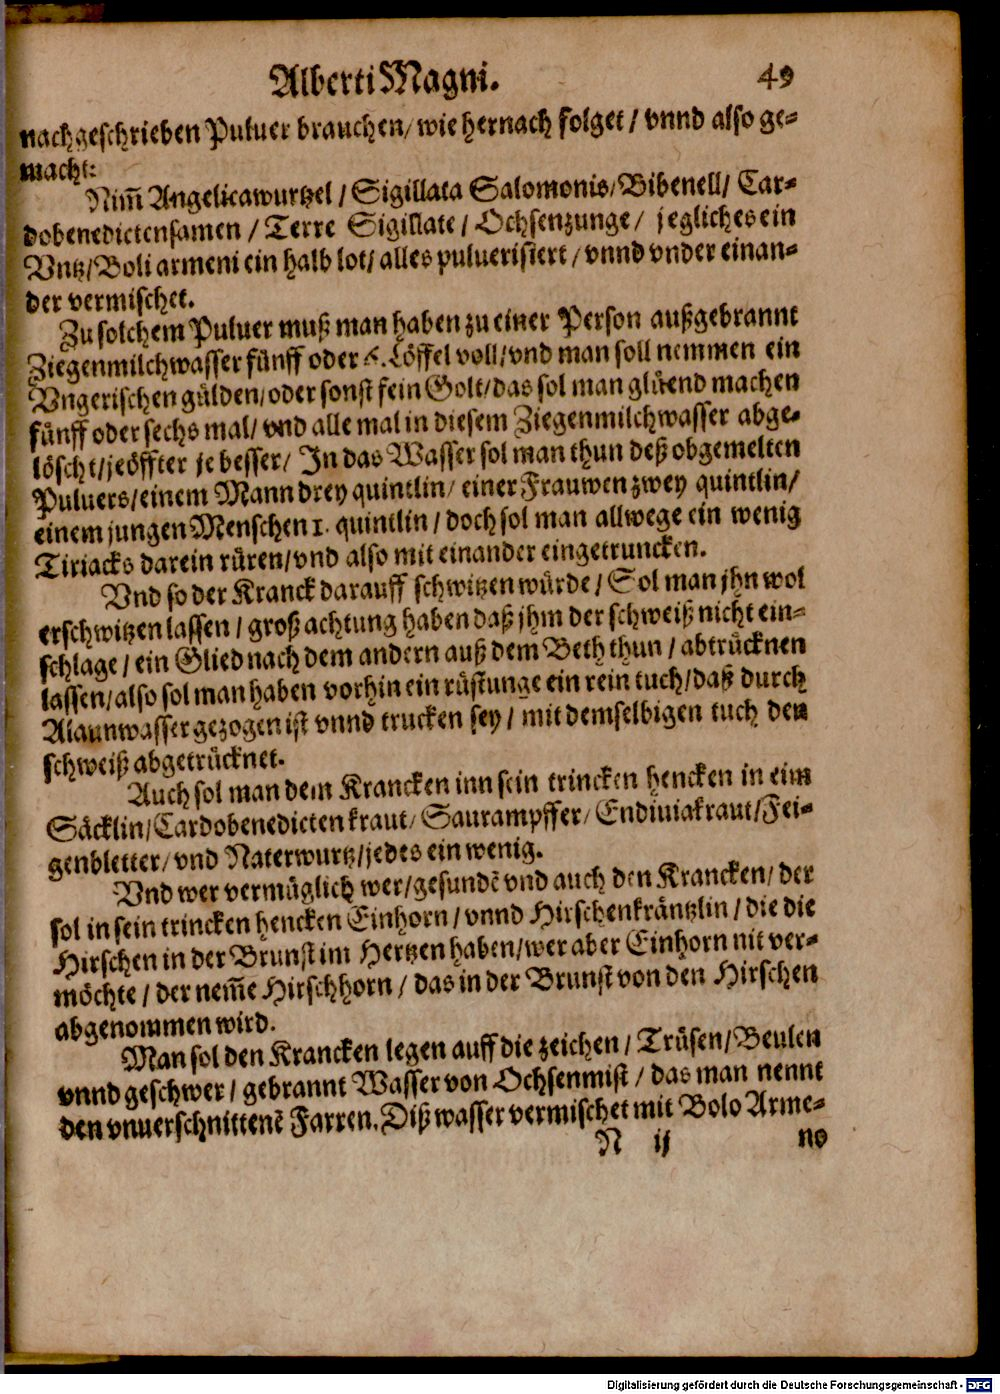 Alberti Magni. 49
nachgeschrieben Puluer brauchen/ wie hernach folget / vnnd also ge-
macht:
Nim̃ Angelicawurtzel / Sigillata Salomonis/ Bibenell/ Car-
dobenedictensamen / Terre Sigillate / Ochsenzunge / jegliches ein
Vntz/ Boli armeni ein halb lot/ alles puluerisiert / vnnd vnder einan-
der vermischet.
Zu solchem Puluer muß man haben zu einer Person außgebrannt
Ziegenmilchwasser fünff oder 6. Löffel voll/ vnd man soll nemmen ein
Vngerischen gülden/ oder sonst fein Golt/ das sol man glüend machen
fünff oder sechs mal/ vnd alle mal in diesem Ziegenmilchwasser abge-
löscht/ je öffter je besser/ In das Wasser sol man thun deß obgemelten
Puluers/ einem Mann drey quintlin/ einer Frauwen zwey quintlin/
einem jungen Menschen 1. quintlin / doch sol man allwege ein wenig
Tiriacks darein rüren/ vnd also mit einander eingetruncken.
Vnd so der Kranck darauff schwitzen würde / Sol man jhn wol
erschwitzen lassen / groß achtung haben daß jhm der schweiß nicht ein-
schlage / ein Glied nach dem andern auß dem Beth thun / abtrücknen
lassen/ also sol man haben vorhin ein rüstunge ein rein tuch/ daß durch
Alaunwasser gezogen ist vnnd trucken sey / mit demselbigen tuch den
schweiß abgetrücknet.
Auch sol man dem Krancken inn sein trincken hencken in eim
Säcklin/ Cardobenedicten kraut/ Saurampffer/ Endiuiakraut/ Fei-
genbletter/ vnd Naterwurtz/ jedes ein wenig.
Vnd wer vermüglich wer/ gesundẽ vnd auch den Krancken/ der
sol in sein trincken hencken Einhorn / vnnd Hirschenkräntzlin / die die
Hirschen in der Brunst im Hertzen haben/ wer aber Einhorn nit ver-
möchte / der nem̃e Hirschhorn / das in der Brunst von den Hirschen
abgenommen wird.
Man sol den Krancken legen auff die zeichen / Trüsen/ Beulen
vnnd geschwer / gebrannt Wasser von Ochsenmist / das man nennt
den vnuerschnittenẽ Farren. Diß wasser vermischet mit Bolo Arme-
N ij no
Digitalisierung gefördert durch die Deutsche Forschungsgemeinschaft - DFG